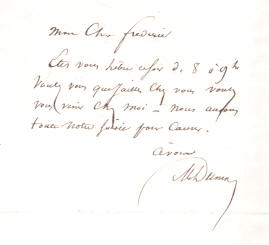 Mon Cher frederic
Etes vous libre ce soir de 8 à 9h
Voulez vous que j'aille chez vous voulez
vous venir chez moi – nous aurons
toute notre soirée pour causer.
à vous